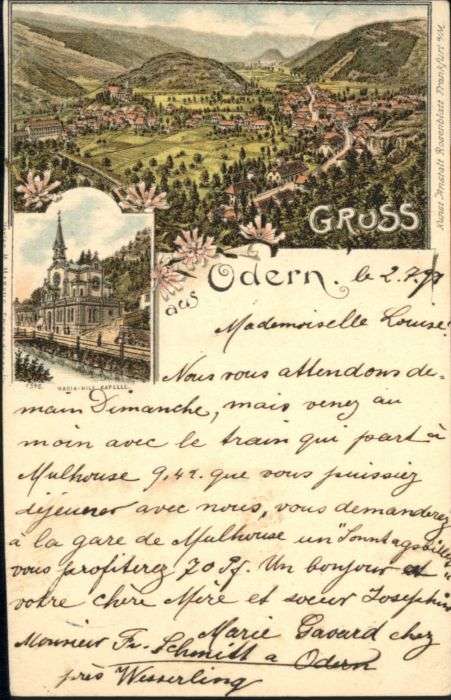 Kunst Anstalt Rosenblatt Frankfurt a/M.
GRUSS
aus Odern. le 2.7.98
1392. MARIA-HILF KAPELLE.
Mademoiselle Louise!
Nous vous attendons de-
main Dimanche, mais venez au
moin avec le train qui part à
Mulhouse 9.42. que vous puissiez
déjeuner avec nous, vous demanderez
à la gare de Mulhouse un "Sonntagsbillet"
vous profiterez 70 Pf. Un bonjour et
votre chère Mère et soeur Josephine
Marie Gavard chez
Monsieur Fr. Schmitt a Odern
près Wesserling